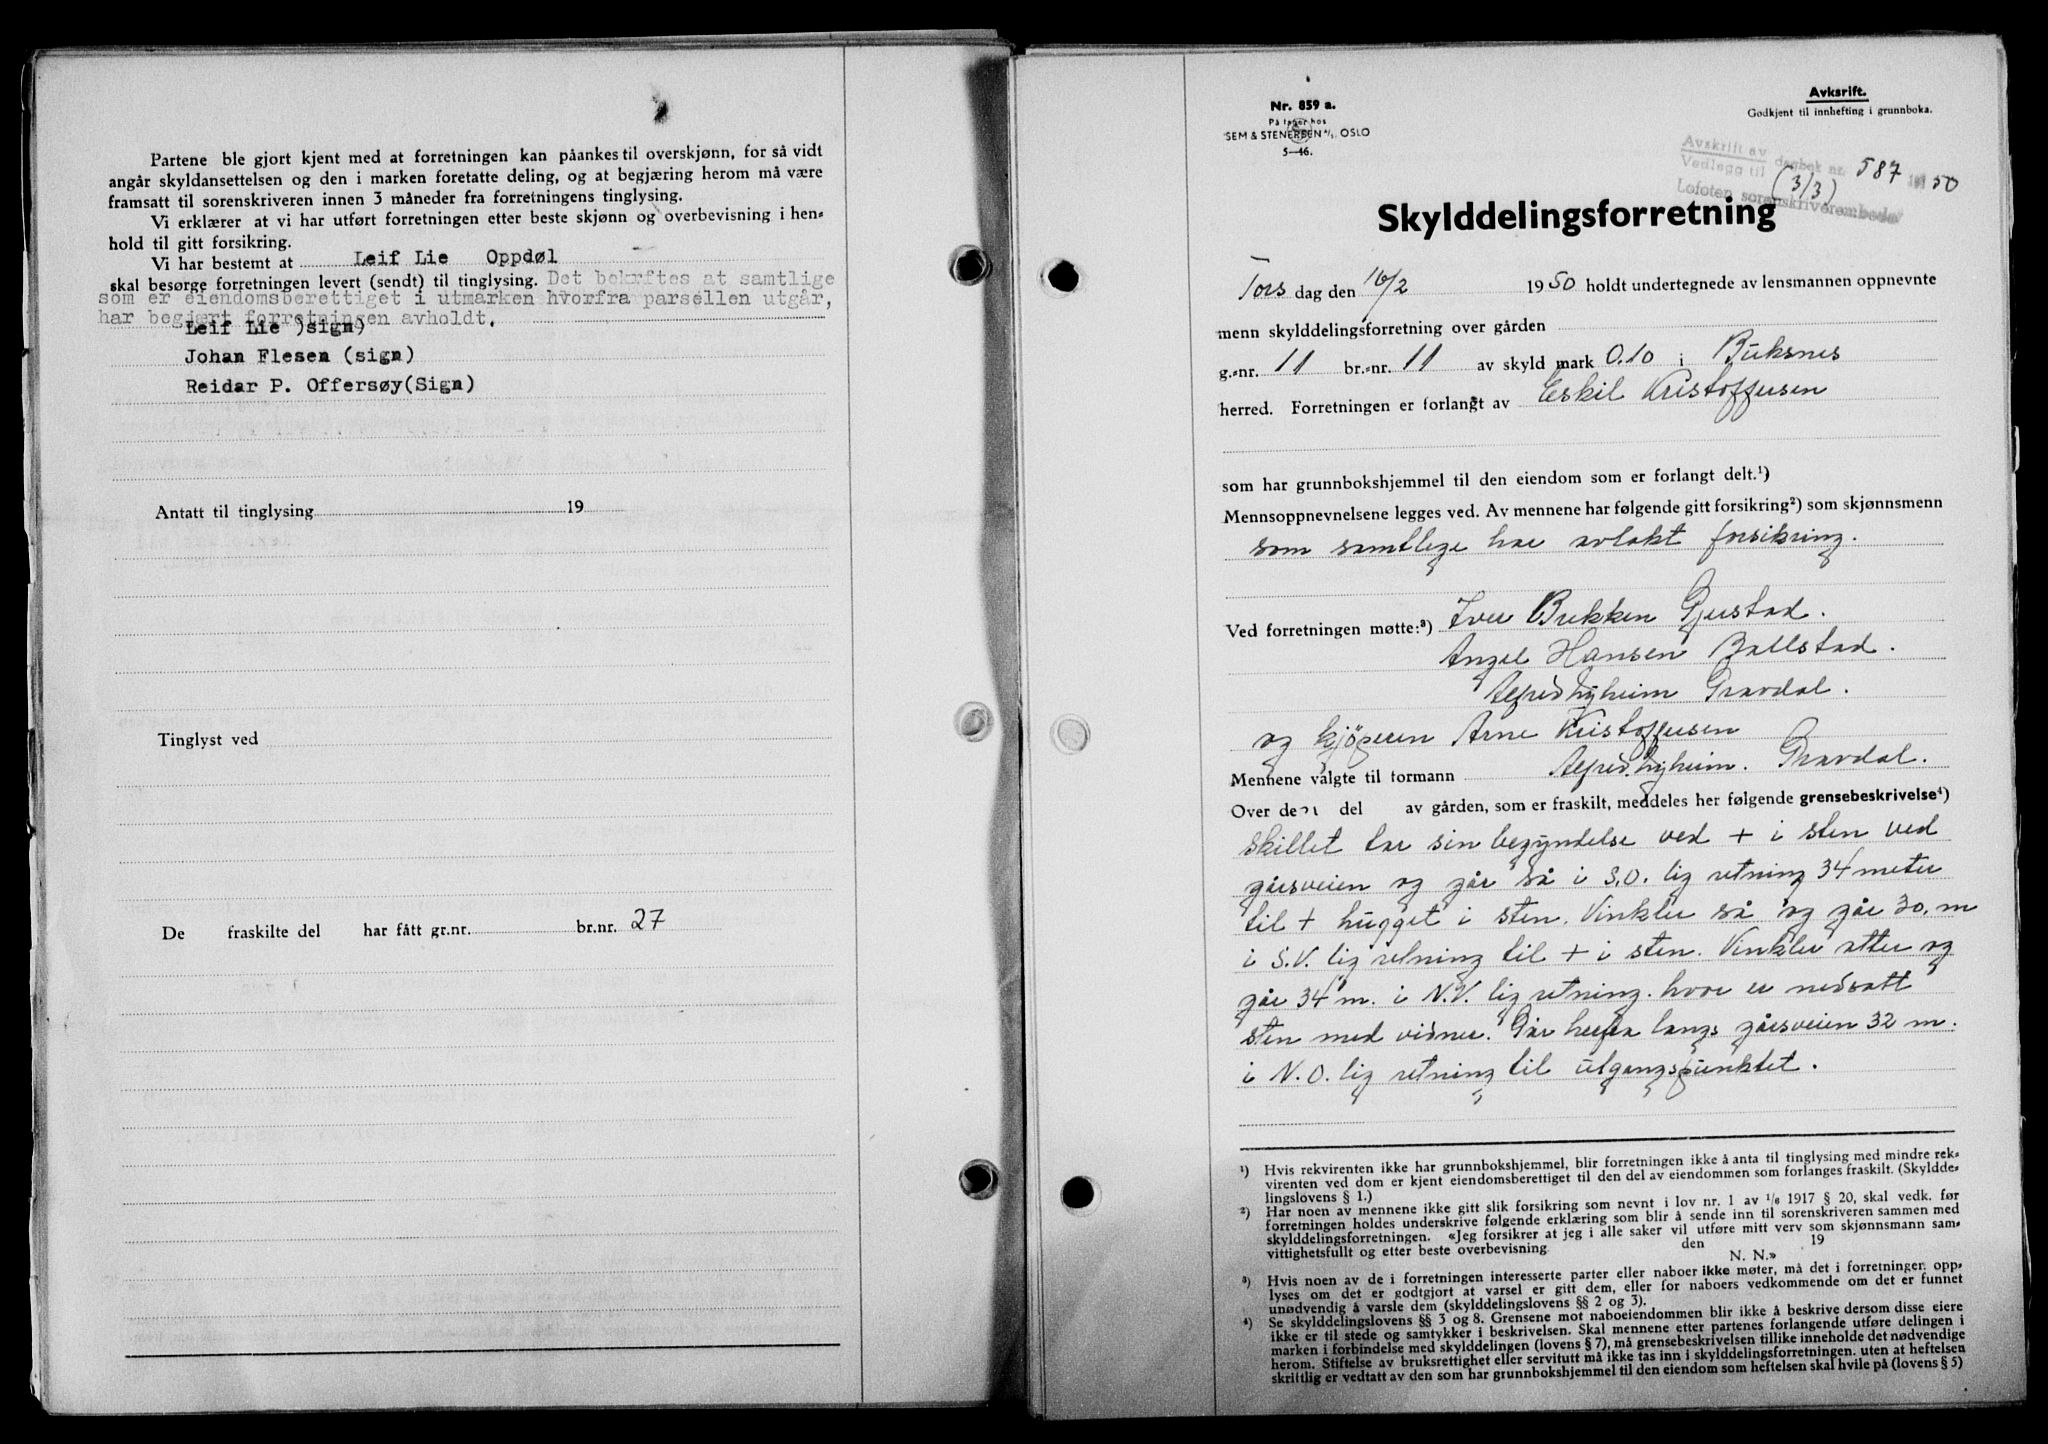 Partene ble gjort kjent med at forretningen kan påankes til overskjønn, for så vidt
angår skyldansettelsen og den i marken foretatte deling, og at begjæring herom må være
framsatt til sorenskriveren innen 3 måneder fra forretningens tinglysing.
Vi erklærer at vi har utført forretningen etter beste skjønn og overbevisning i hen-
hold til gitt forsikring.
Vi har bestemt at Leif Lie Oppdøl
skal besørge forretningen levert (sendt) til tinglysing. Det bekrftes at samtlige
som er eiendomsberettiget i utmarken hvorfra parsellen utgår,
har begjært forretningen avholdt.
Leif Lie )sign)
Johan Flesen (sign)
Reidar P. Offersøy(Sign)
Antatt til tinglysing 19
Tinglyst ved
De fraskilte del har fått gr.nr. br.nr. 27
Nr. 859 a.
På lager hos
SEM & STENERSEN A/S, OSLO
5-46.
Avksrift.
Godkjent til innhefting i grunnboka.
Avskrift av
Vedlegg til dagbok nr. 587 1950
(3/3)
Lofoten sorenskriverembede
Skylddelingsforretning
Tors dag den 16/2 1950 holdt undertegnede av lensmannen oppnevnte
menn skylddelingsforretning over gården
g.-nr. 11 br.-nr. 11 av skyld mark 0.10 i Buksnes
herred. Forretningen er forlangt av Eskil Kristoffersen
som har grunnbokshjemmel til den eiendom som er forlangt delt.¹)
Mennsoppnevnelsene legges ved. Av mennene har følgende gitt forsikring²) som skjønnsmenn
som samtlige har avlakt forsikring.
Ved forretningen møtte:³) Iver Bukken Gjerstad.
Angel Hansen Ballstad.
Alfred Nyheim Gravdal.
og kjöperen Arne Kristoffersen
Mennene valgte til formann Alfred Nyheim. Gravdal.
Over den del av gården, som er fraskilt, meddeles her følgende grensebeskrivelse⁴)
skillet tar sin begyndelse ved + i sten ved
gårsveien og går så i S.O. lig retning 34 meter
til + hugget i sten. Vinkler så og går 30. m
i S.V. lig retning til + i sten. Vinkler atter og
går 34 m. i N.V. lig retning. hvor er nedsatt
sten med vidner. Går herfra langs gårsveien 32 m.
i N.O. lig retning til utgangspunktet.
¹) Hvis rekvirenten ikke har grunnbokshjemmel, blir forretningen ikke å anta til tinglysing med mindre rek-
virenten ved dom er kjent eiendomsberettiget til den del av eiendommen som forlanges fraskilt. (Skyldde-
lingslovens § 1.)
²) Har noen av mennene ikke gitt slik forsikring som nevnt i lov nr. 1 av 1/6 1917 § 20, skal vedk. før
forretningen holdes underskrive følgende erklæring som blir å sende inn til sorenskriveren sammen med
skylddelingsforretningen. «Jeg forsikrer at jeg i alle saker vil utføre mitt verv som skjønnsmann sam-
vittighetsfullt og etter beste overbevisning den 19
N. N.»
³) Hvis noen av de i forretningen interesserte parter eller naboer ikke møter, må det i forretningen opp-
lyses om det er godtgjort at varsel er gitt dem, eller for naboers vedkommende om det er funnet
unødvendig å varsle dem (skylddelingslovens §§ 2 og 3).
⁴) Se skylddelingslovens §§ 3 og 8. Grensene mot naboeiendommen blir ikke å beskrive dersom disse eiere
ikke er til stede og samtykker i beskrivelsen. Skal mennene etter partenes forlangende utføre delingen i
marken i forbindelse med skylddelingen (lovens § 7), må grensebeskrivelsen tillike inneholde det nødvendige
herom. Stiftelse av bruksrettighet eller servitutt må ikke tas inn i skylddelingsforretningen. uten at heftelsen
skriftlig er vedtatt av den som har grunnbokshjemmel til den eiendom som heftelsen skal hvile på (lovens § 5)